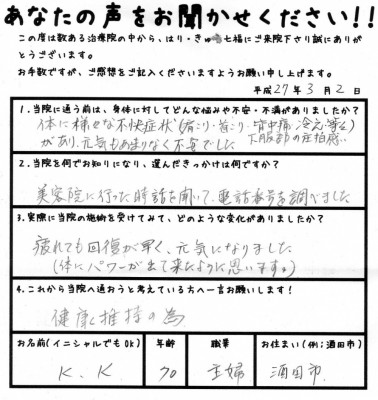 あなたの声をお聞かせください!!
この度は数ある治療院の中から、はり・きゅう七福にご来院下さり誠にありが
とうございます。
お手数ですが、ご感想をご記入くださいますようお願い申し上げます。
平成27年3月2日
1.当院に通う前は、身体に対してどんな悩みや不安・不満がありましたか?
体に様々な不快症状(肩こり・首こり・背中痛 冷え
下腹部の圧迫感
があり、元気もあまりなく不安でした
2.当院を何でお知りになり、選んだきっかけは何ですか?
美容院に行った時話を聞いて、電話番号を調べました
3.実際に当院の施術を受けてみて、どのような変化がありましたか?
疲れても回復が早く、元気になりました
(体にパワーが出て来たように思います。)
4.これから当院へ通おうと考えている方へ一言お願いします!
健康維持の為
お名前(イニシャルでもOK) 年齢 職業 お住まい(例;酒田市)
K.K 70 主婦 酒田市.